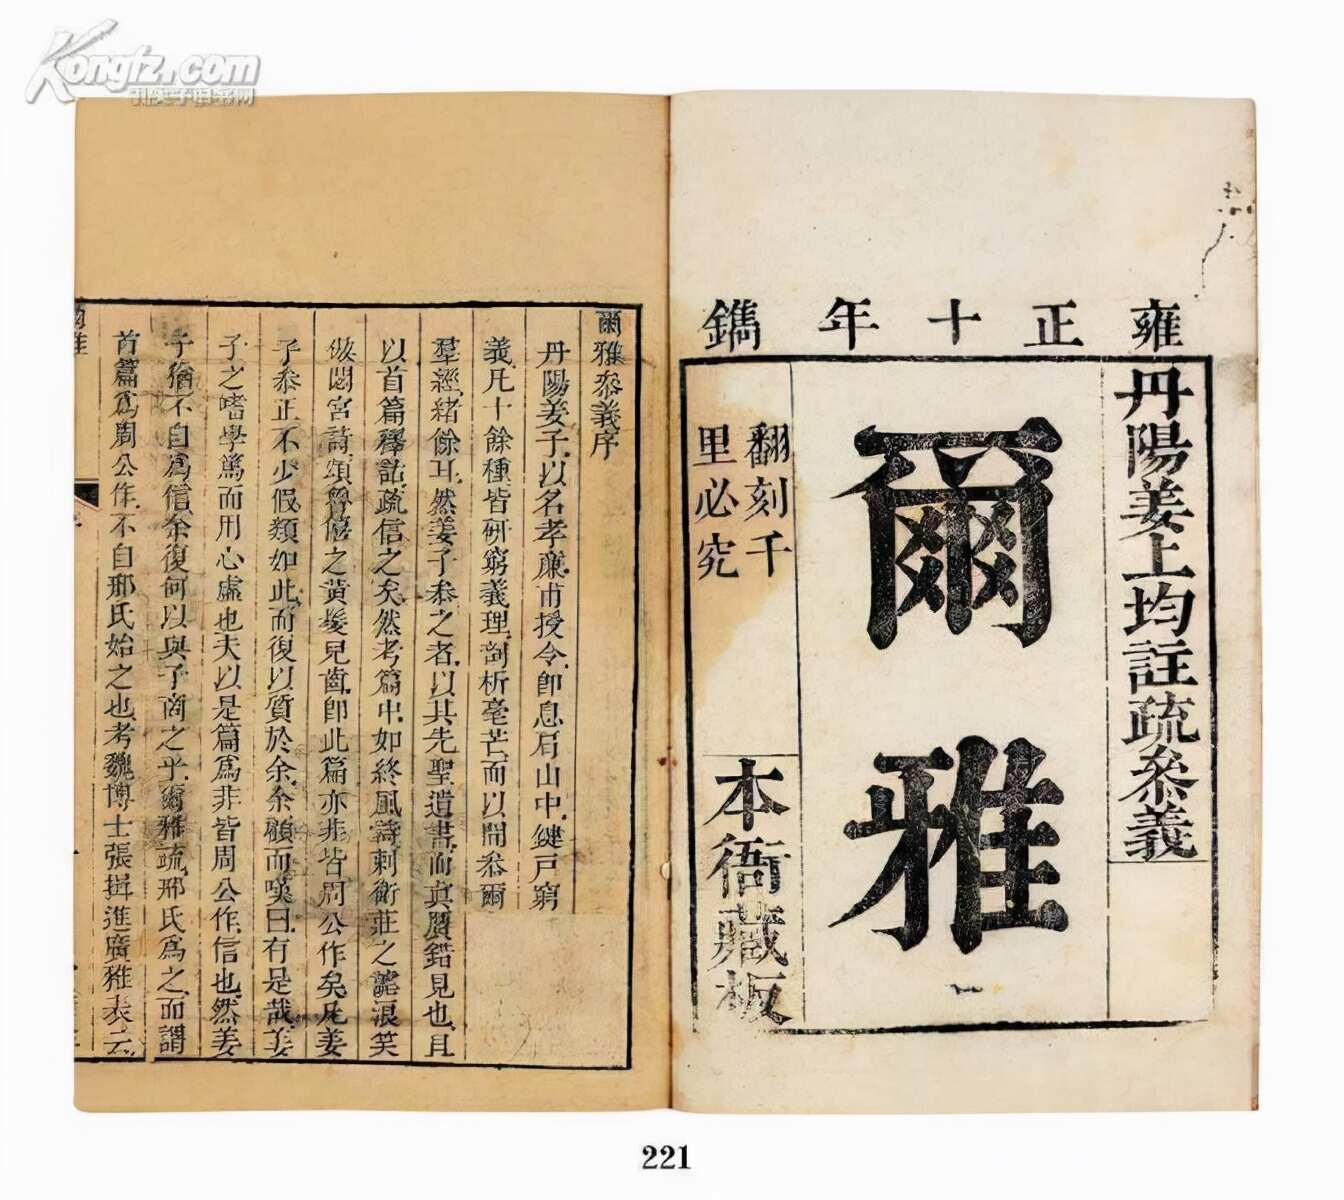 Kongfz.com
孔夫子旧书网
雍正十年鐫
丹陽姜上均註疏叅義
爾雅
翻刻千
里必究
本衙藏板
爾雅叅義序
丹陽姜子以名孝廉甫授令即息肩山中鍵戸窮
義凡十餘種皆研窮義理剖析毫芒而以閒叅爾
羣經緒餘耳然姜子叅之者以其先聖遺書而真贋錯見也且
以首篇釋詁疏信之矣然考篇中如終風詩刺衛莊之謔浪笑
敖閟宮詩頌魯僖之黃髮兒齒即此篇亦非皆周公作矣凡姜
子叅正不少假類如此而復以質於余余顧而嘆曰有是哉姜
子之嗜學篤而用心虛也夫以是篇爲非皆周公作信也然姜
子猶不自爲信余復何以與子商之乎爾雅疏邢氏爲之而謂
首篇爲周公作不自邢氏始之也考魏博士張揖進廣雅表云
221